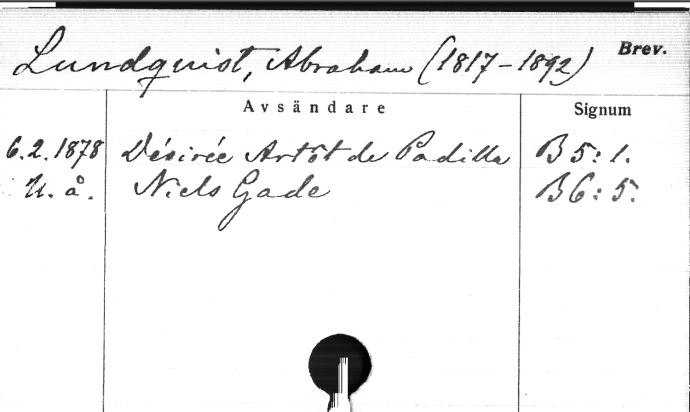 Lundquist, Abraham (1817-1892) Brev.
Avsändare Signum
6.2.1878 Désirée Artôt de Padilla B 5:1.
U. å. Niels Gade B 6:5.